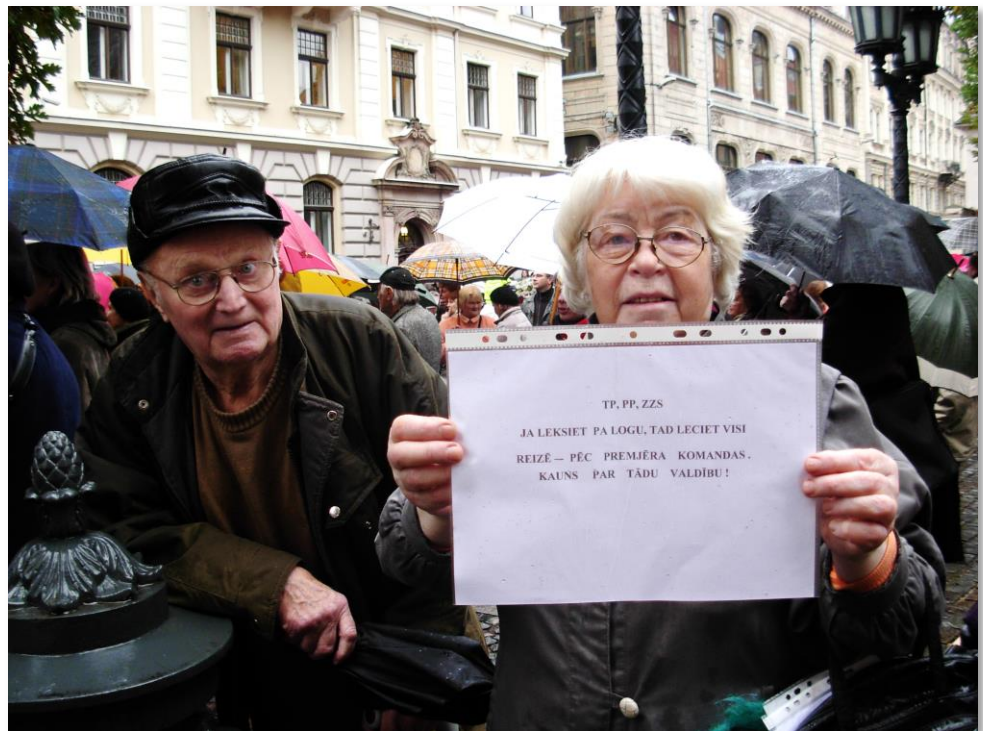 TP, PP, ZZS
JA LEKSIET PA LOGU, TAD LECIET VISI
REIZĒ – PĒC PREMJĒRA KOMANDAS.
KAUNS PAR TĀDU VALDĪBU!